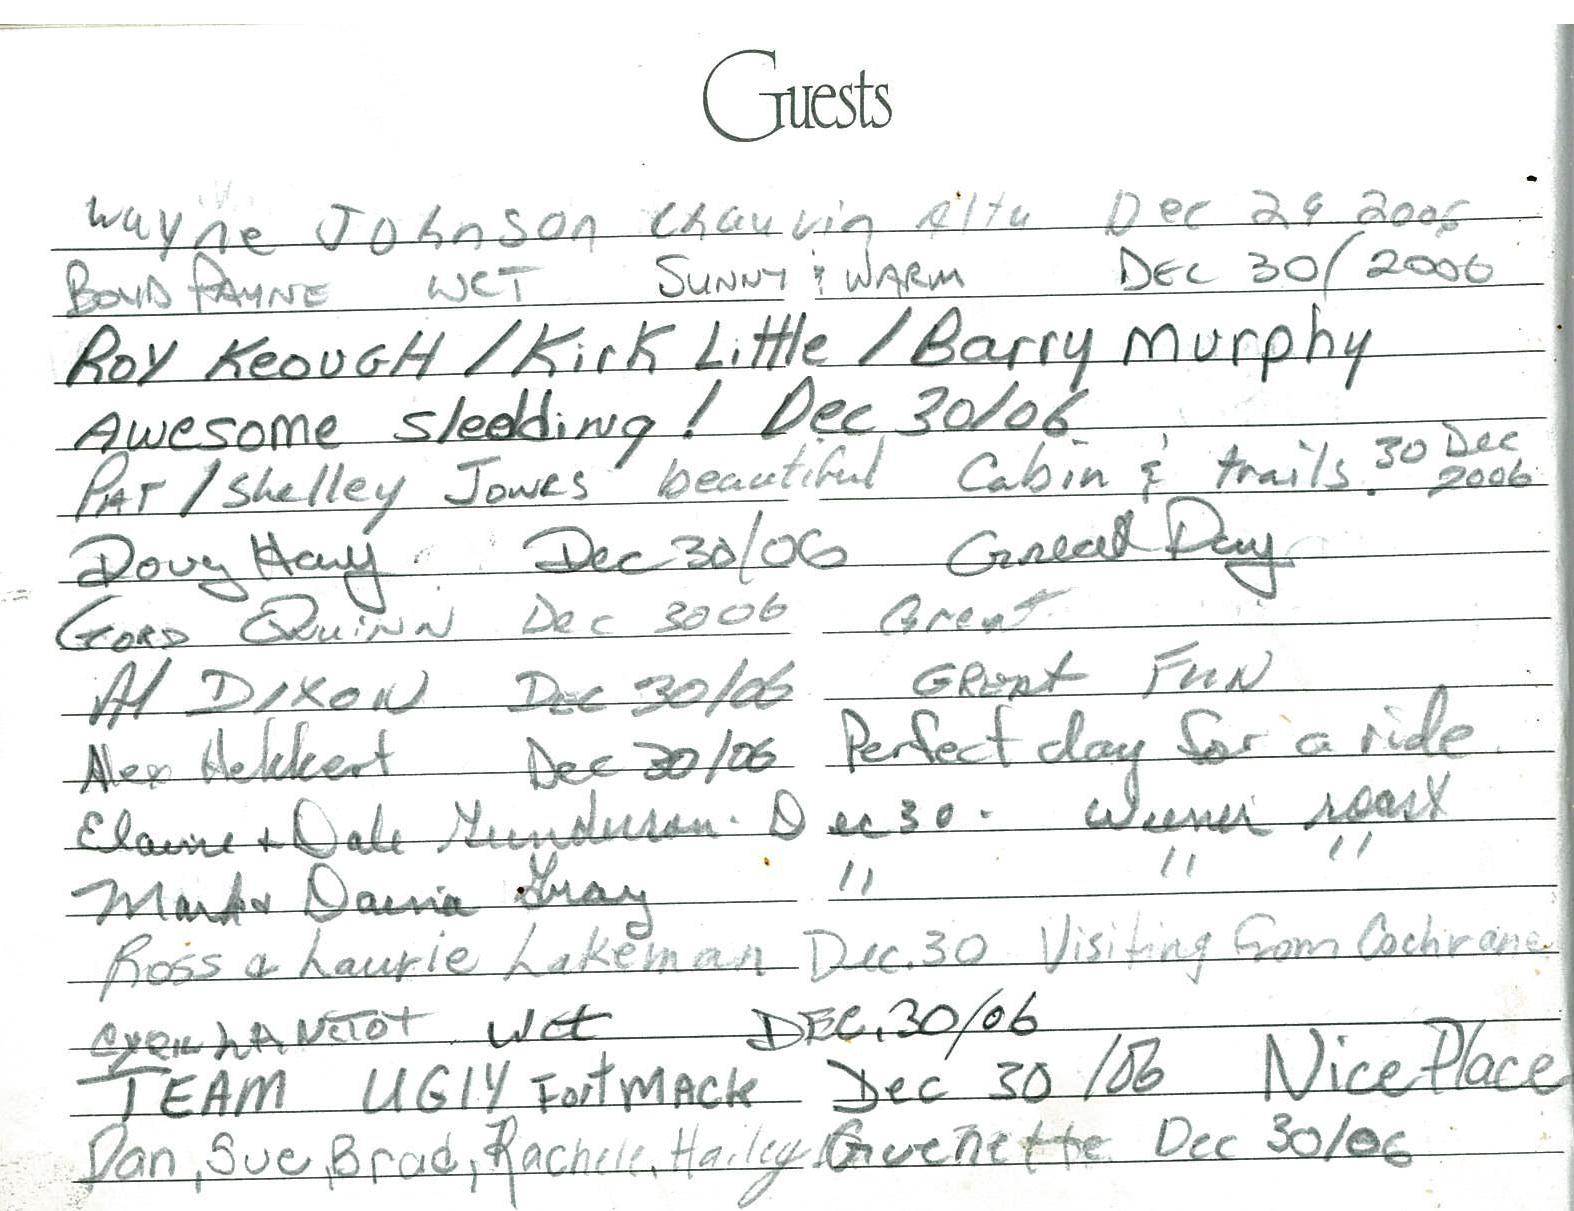 Guests
Wayne Johnson Chauvin Alta Dec 29 2006
BOYD PAYNE WCT SUNNY & WARM DEC 30/2006
ROY KEOUGH / Kirk Little / Barry Murphy
Awesome sledding! Dec 30/06
PAT / Shelley Jones beautiful Cabin & trails. 30 Dec 2006
Doug Hay Dec 30/06 Great Day
GORD QUINN Dec 30 06 Great
Al DIXON DEC 30/06 GREAT FUN
Alex Hekkert Dec 30/06 Perfect day for a ride
Elaine + Dale Gunderson. Dec 30. Weiner roast
Mark & Gray " " "
Ross & Laurie Lakeman Dec. 30 Visiting from Cochrane
WCT DEC. 30/06
TEAM UGLY Fort MACK Dec 30 /06 Nice Place
Dan, Sue, Brad, Rachele, Hailey Guenette Dec 30/06